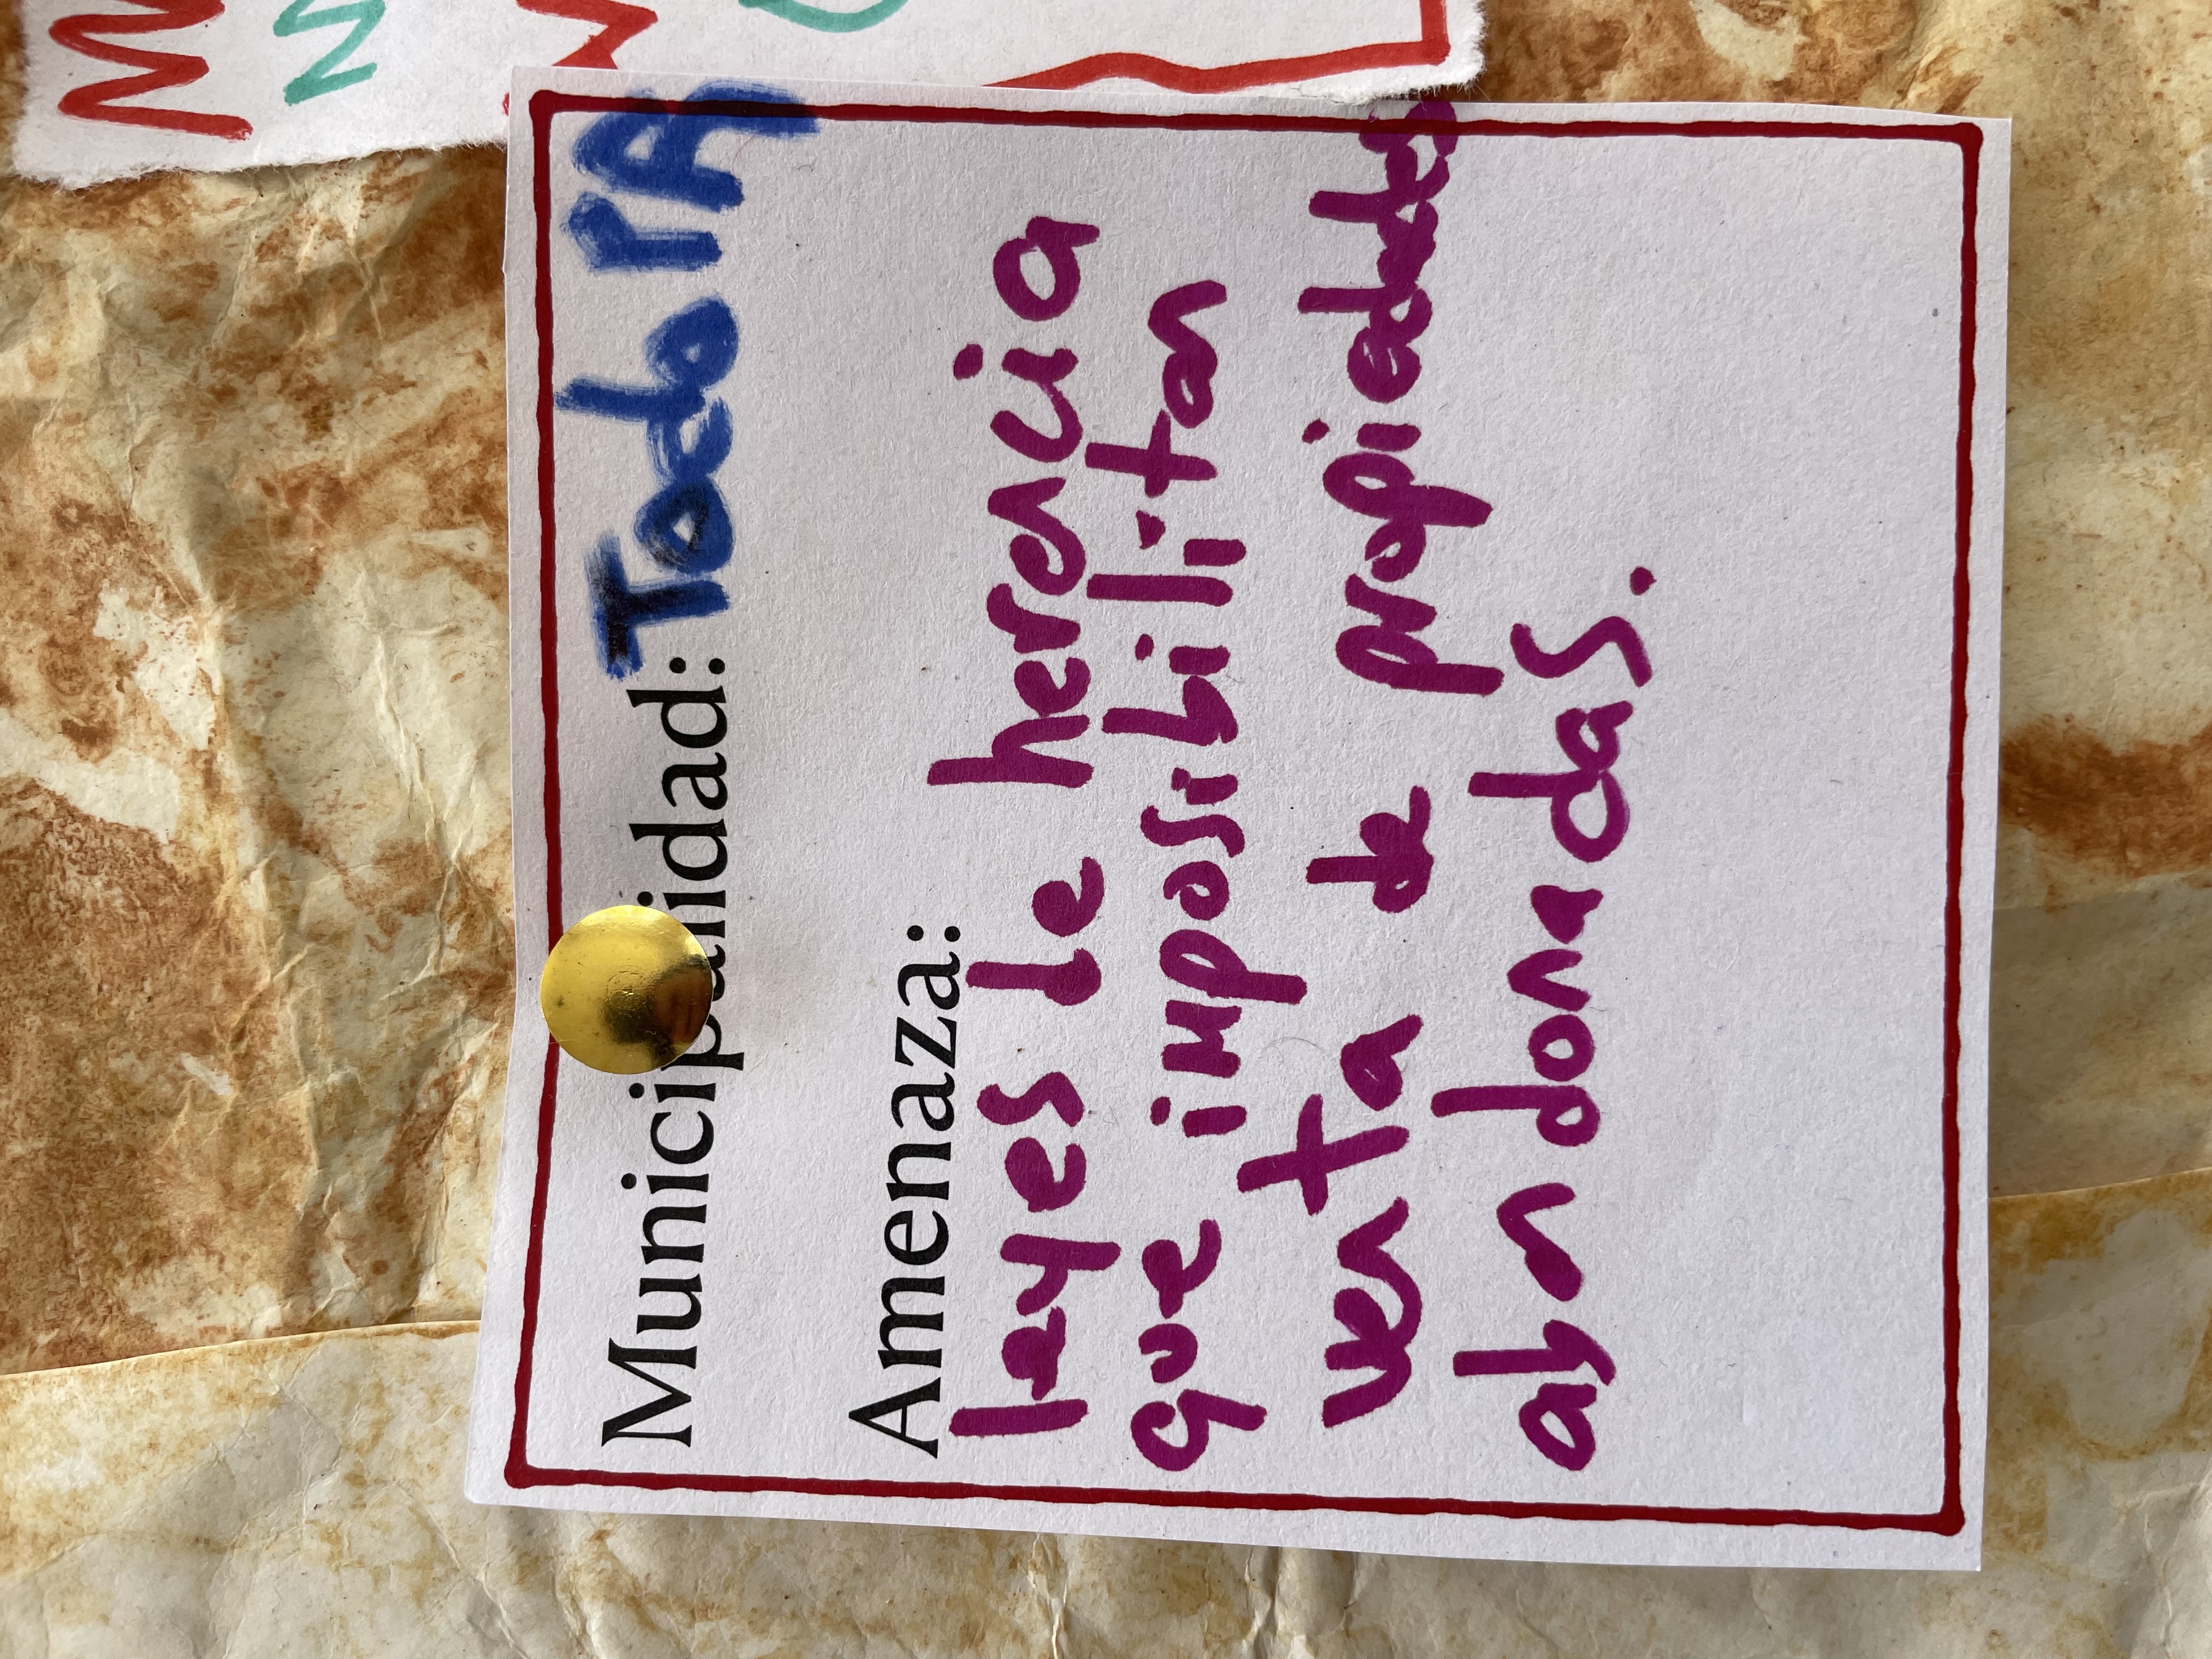 Municipalidad: Todo PR
Amenaza:
leyes de herencia
que imposibilitan
venta de propiedades
abandonadas.